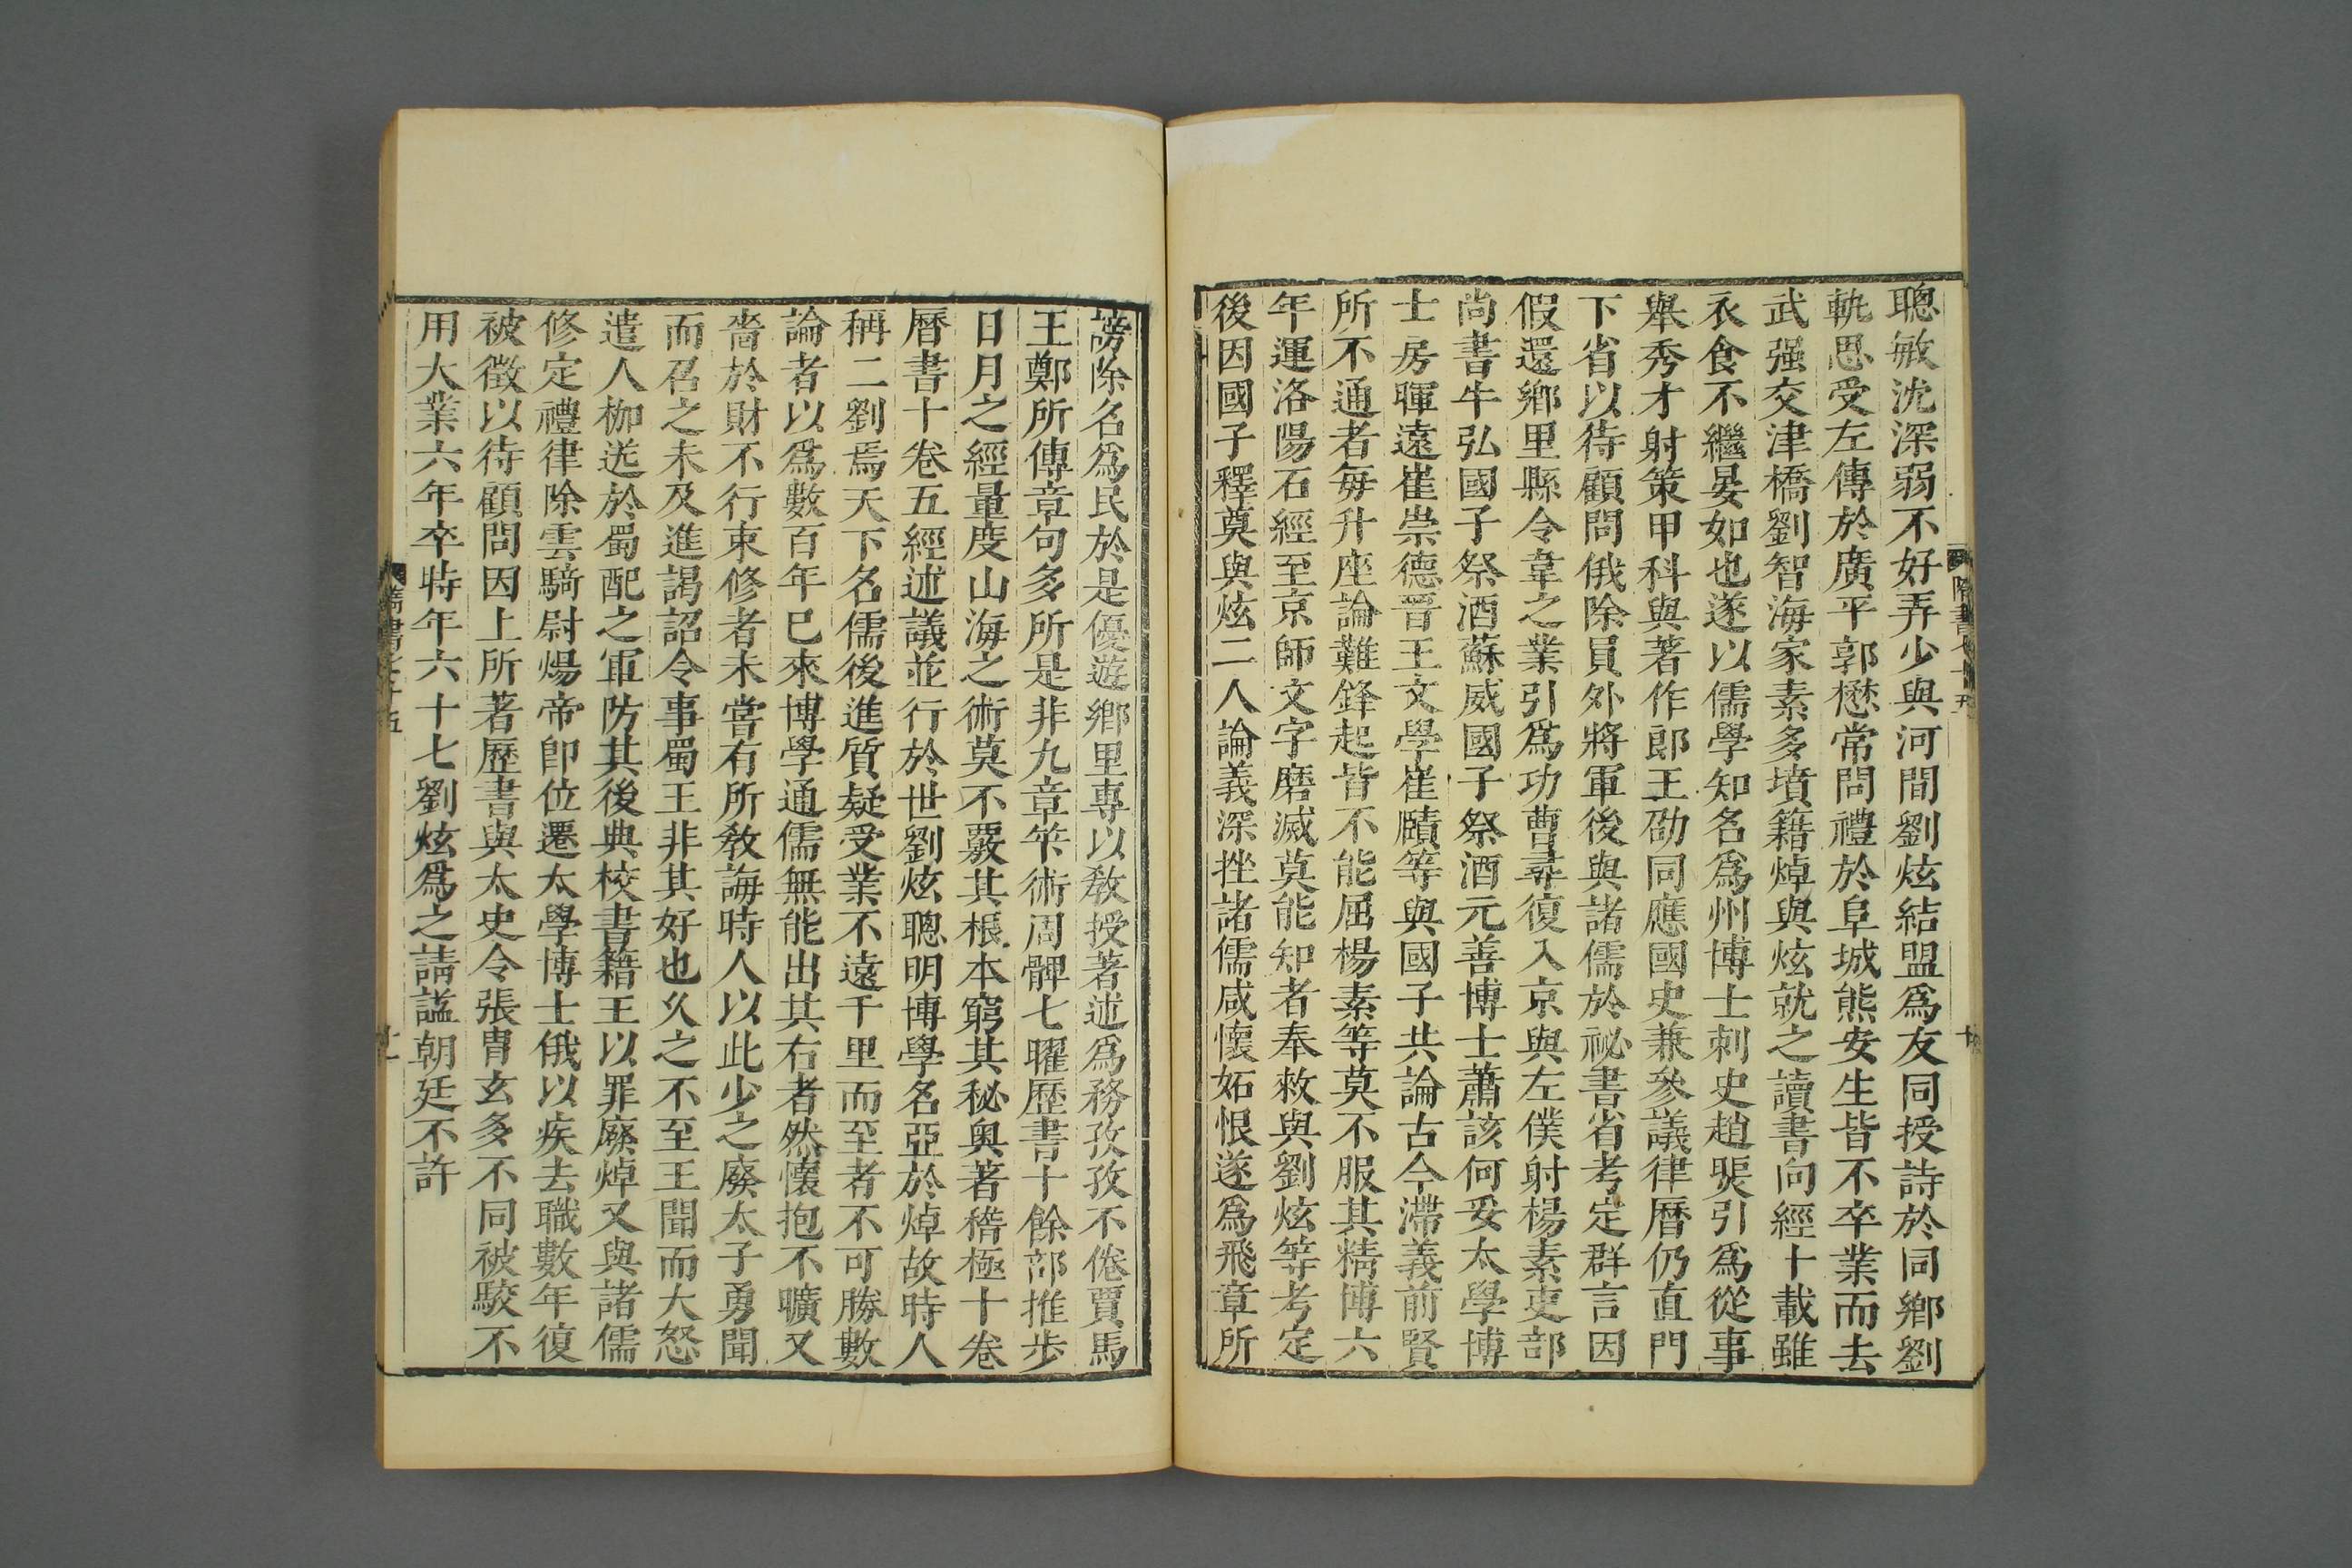 聰敏沈深弱不好弄少與河間劉炫結盟爲友同授詩於同鄉劉
軌思受左傳於廣平郭懋常問禮於阜城熊安生皆不卒業而去
武强交津橋劉智海家素多墳籍焯與炫就之讀書向經十載雖
衣食不繼晏如也遂以儒學知名爲州博士刺史趙煚引爲從事
舉秀才射策甲科與著作郎王劭同應國史兼參議律曆仍直門
下省以待顧問俄除員外將軍後與諸儒於祕書省考定群言因
假還鄉里縣令韋之業引爲功曹尋復入京與左僕射楊素吏部
尚書牛弘國子祭酒蘇威國子祭酒元善博士蕭該何妥太學博
士房暉遠崔崇德晉王文學崔賾等與國子共論古今滯義前賢
所不通者每升座論難鋒起皆不能屈楊素等莫不服其精博六
年運洛陽石經至京師文字磨滅莫能知者奉敕與劉炫等考定
後因國子釋奠與炫二人論義深挫諸儒咸懷妬恨遂爲飛章所
謗除名爲民於是優遊鄉里專以敎授著述爲務孜孜不倦賈馬
王鄭所傳章句多所是非九章筭術周髀七曜歷書十餘部推步
日月之經量度山海之術莫不覈其根本窮其秘奧著稽極十卷
曆書十卷五經述議並行於世劉炫聰明博學名亞於焯故時人
稱二劉焉天下名儒後進質疑受業不遠千里而至者不可勝數
論者以爲數百年已來博學通儒無能出其右者然懷抱不曠又
嗇於財不行束修者未嘗有所敎誨時人以此少之廢太子勇聞
而召之未及進謁詔令事蜀王非其好也久之不至王聞而大怒
遣人枷送於蜀配之軍防其後典校書籍王以罪廢焯又與諸儒
修定禮律除雲騎尉煬帝卽位遷太學博士俄以疾去職數年復
被徵以待顧問因上所著歷書與太史令張冑玄多不同被駮不
用大業六年卒時年六十七劉炫爲之請諡朝廷不許